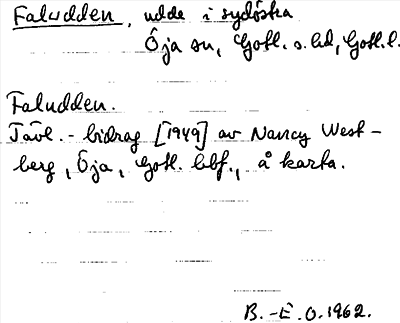 Faludden, udde i sydöstra
Öja sn, Gotl. s. hd, Gotl. l.
Faludden.
Tävl.-bidrag [1949] av Nancy West-
berg, Öja, Gotl. blf., å karta.
B.-E. O. 1962.